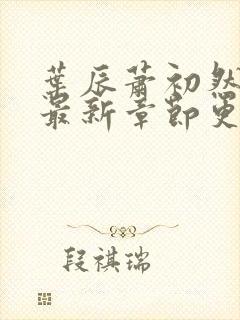 葉辰蕭初然
最新章節更
段祺瑞